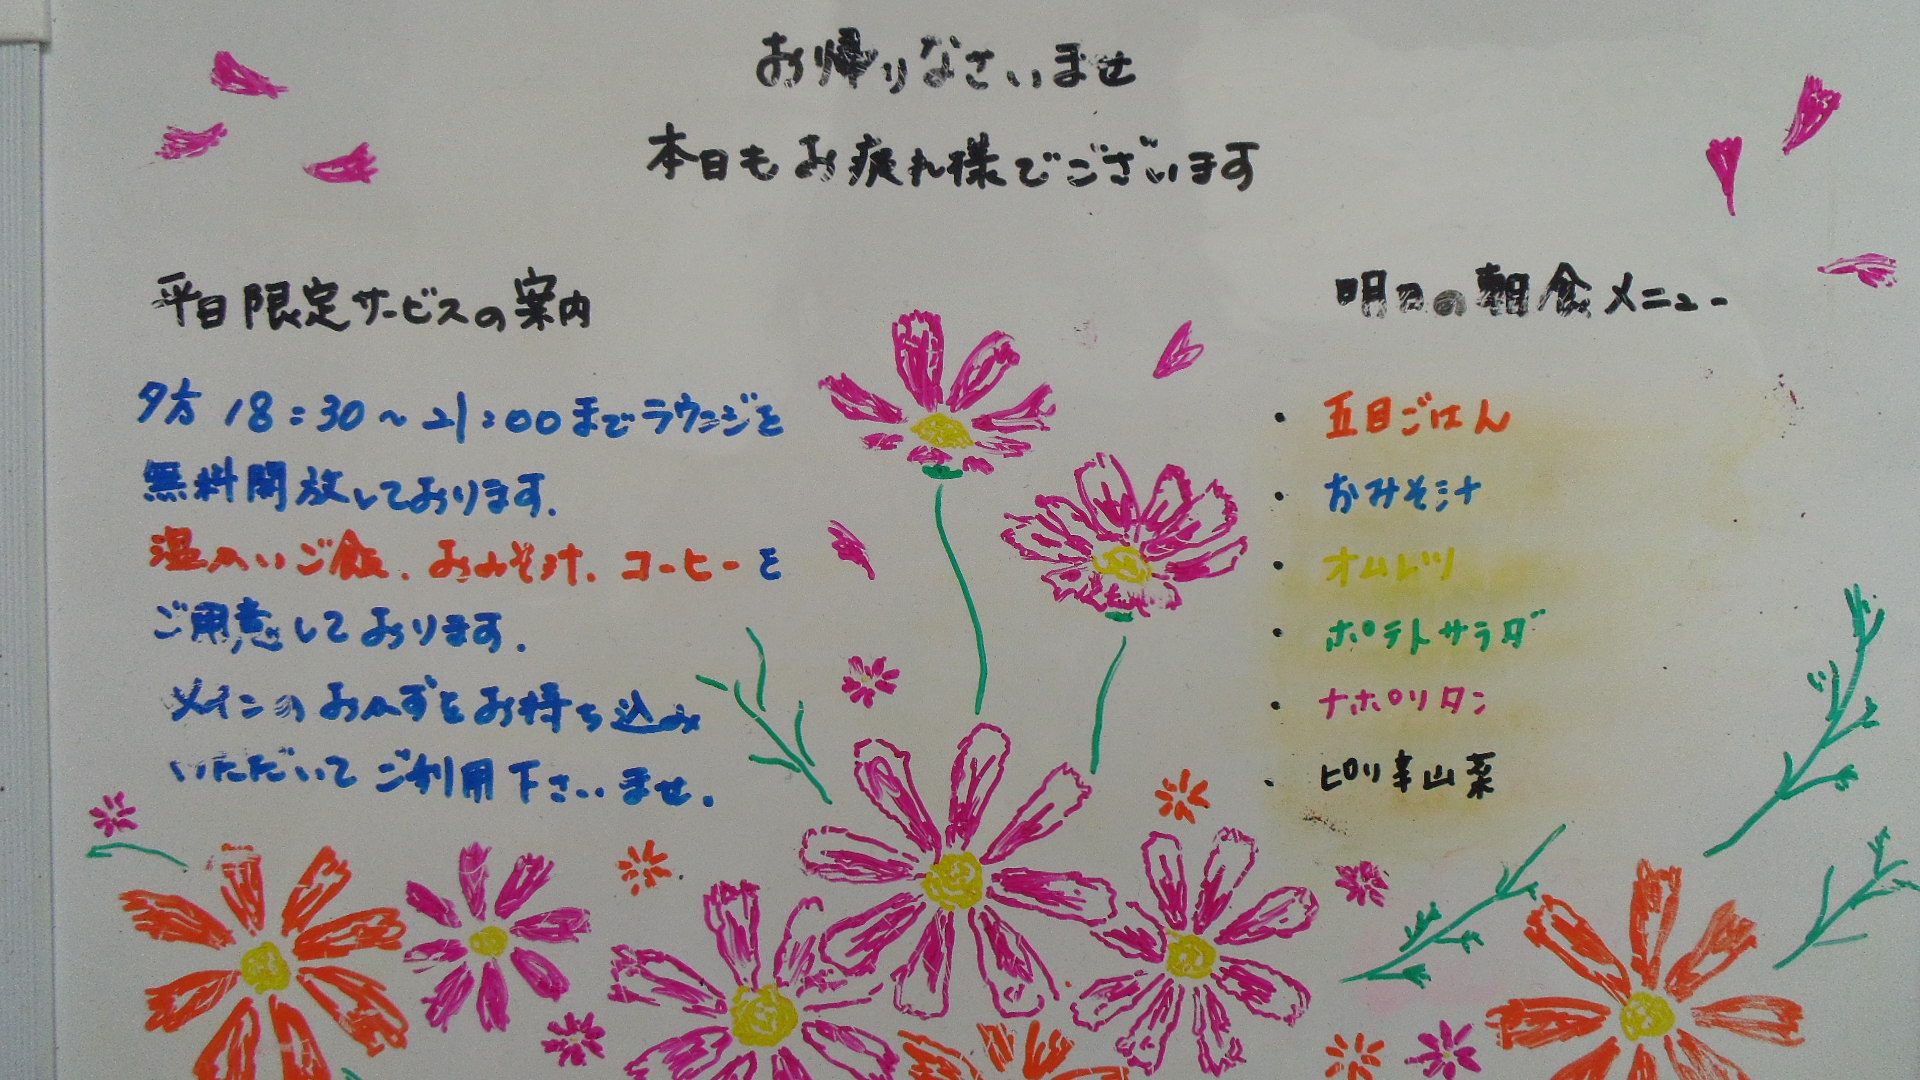 お帰りなさいませ
本日もお疲れ様でございます
平日限定サービスの案内
夕方 18:30～21:00までラウンジを
無料開放しております.
温かいご飯、おみそ汁、コーヒーを
ご用意しております.
メインのおかずをお持ち込み
いただいてご利用下さいませ.
明日の朝食メニュー
・五目ごはん
・おみそ汁
・オムレツ
・ポテトサラダ
・ナポリタン
・ピリ辛山菜